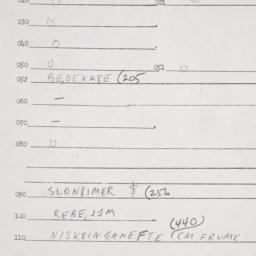 020 0 021 0
030 0
040 0
050 0 051 0
052 BE, DEXKPE (205
060 –
070 –
080 0
090 SLONPIMER $ (256
100 REBE, JJM
(440)
110 NISKBINGANEFTE CM FRUMK